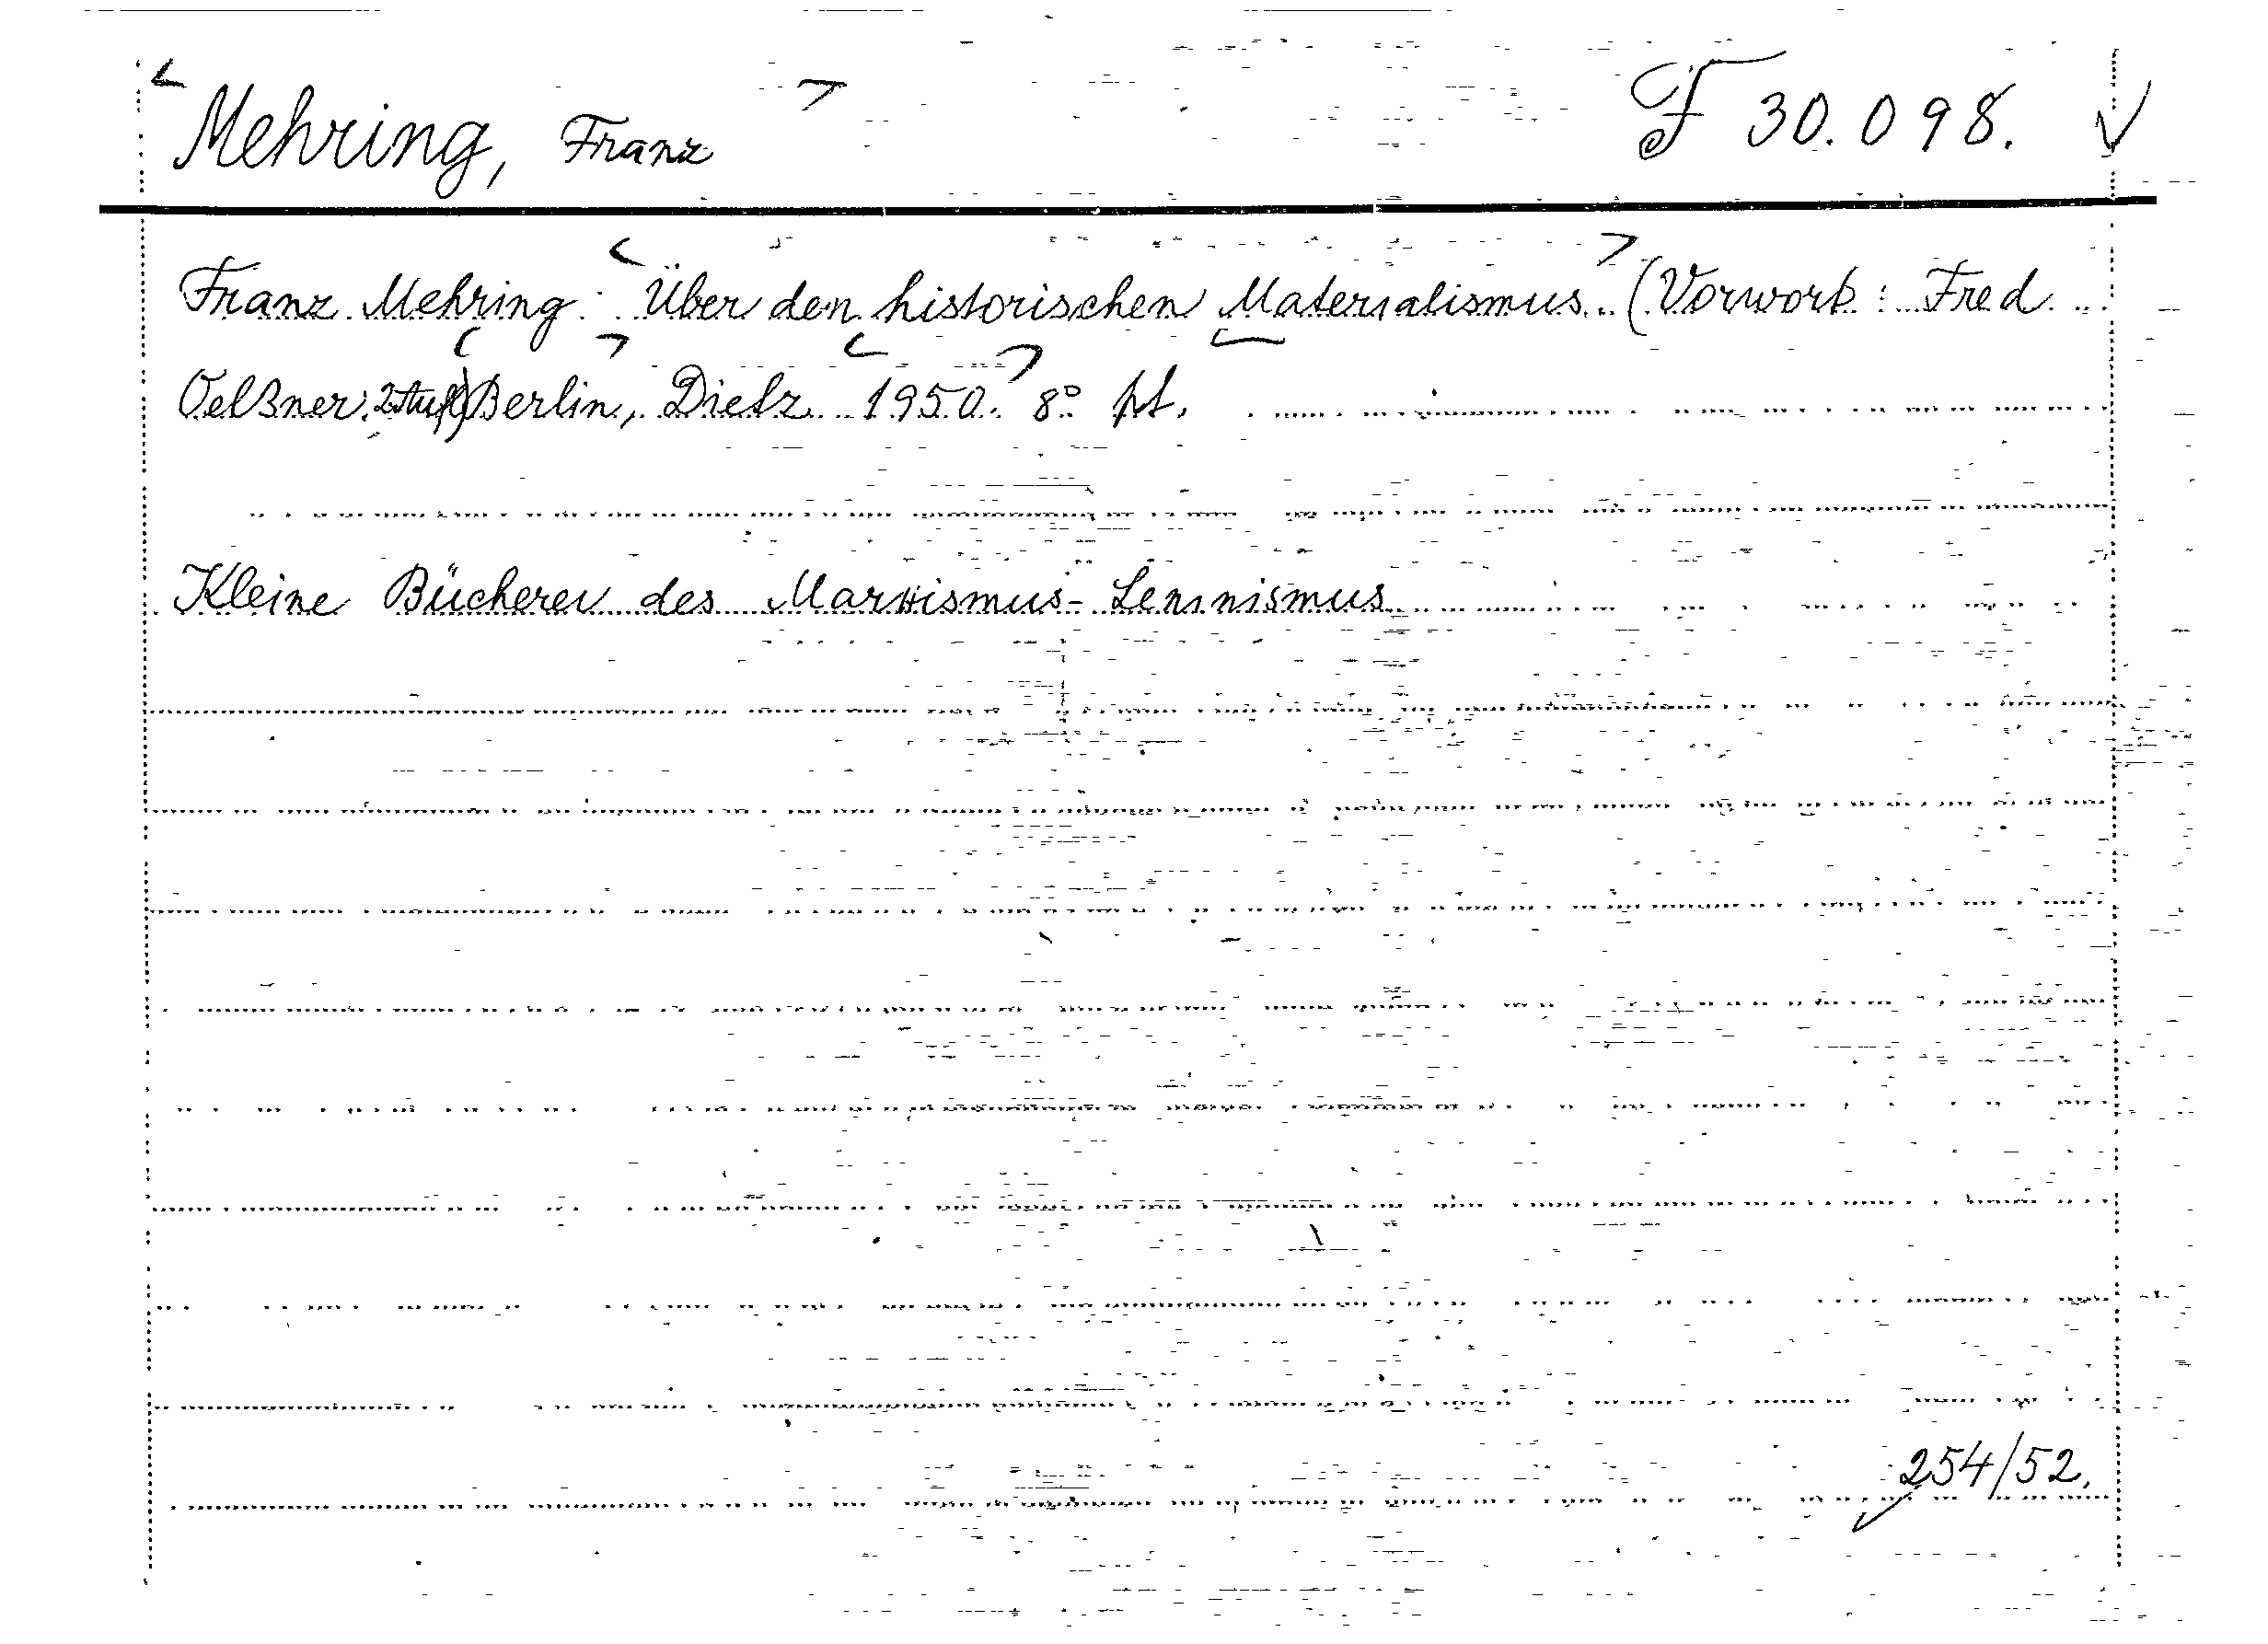 Mehring, Franz F 30.098.
Franz Mehring: Über den historischen Materialismus. (Vorwort: Fred
Oelßner. 2. Aufl.) Berlin, Dietz 1950. 8°
Kleine Bücherei des Marxismus-Leninismus
254/52.